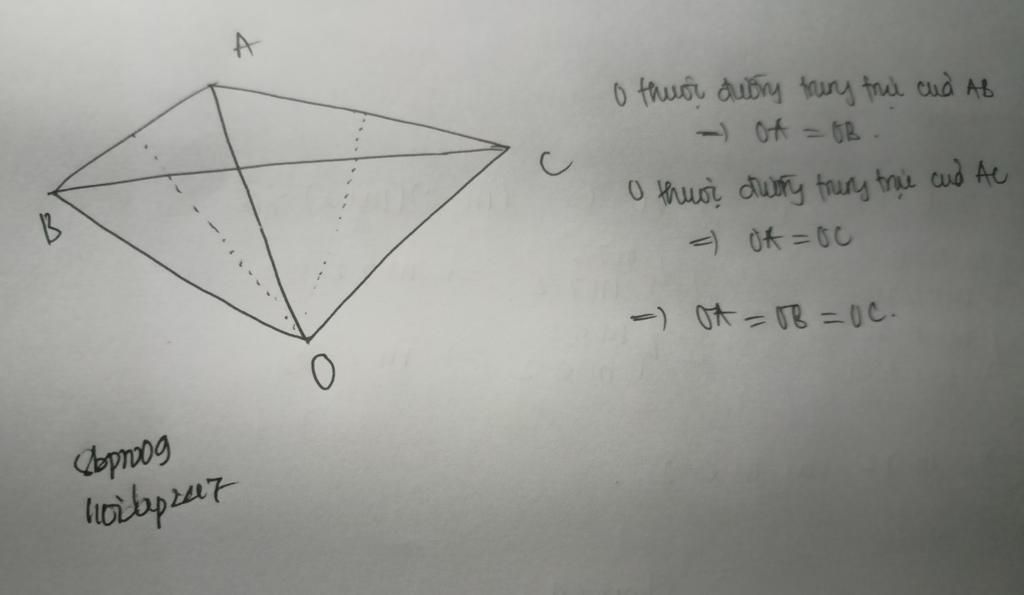 A
O thuộc đường trung trực của AB
=) OA = OB.
C
O thuộc đường trung trực của AC
B
=) OA = OC
=) OA = OB = OC.
O